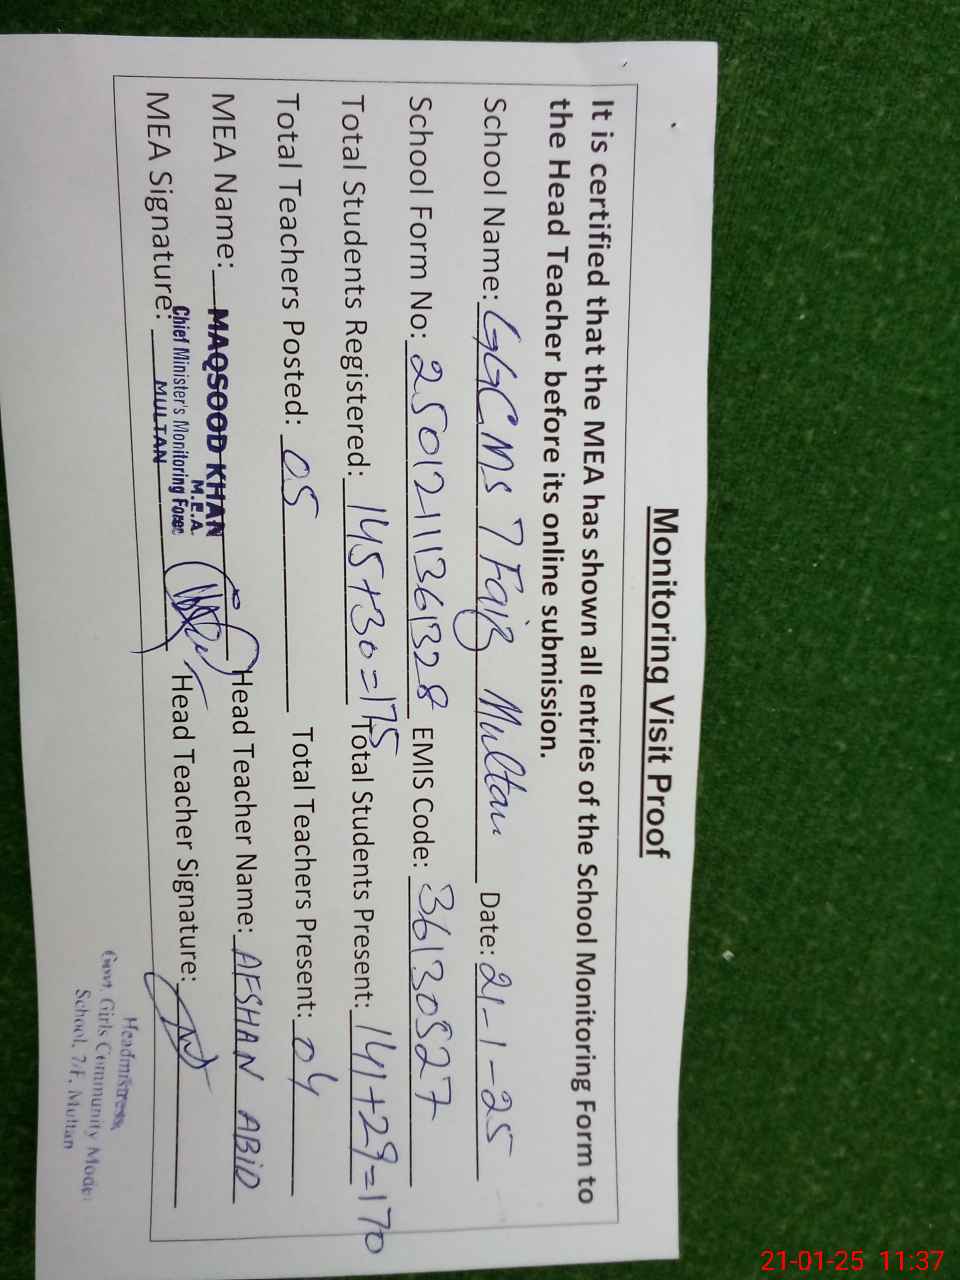 Monitoring Visit Proof
It is certified that the MEA has shown all entries of the School Monitoring Form to
the Head Teacher before its online submission.
School Name: GGCMS 7 Faiz Multan Date: 21-1-25
School Form No: 25012111361328 EMIS Code: 36130527
Total Students Registered: 145+30=175 Total Students Present: 141+29=170
Total Teachers Posted: 05 Total Teachers Present: 04
MEA Name: MAQSOOD KHAN Head Teacher Name: AFSHAN ABiD
M.E.A.
Chief Minister's Monitoring Force
MEA Signature: MULTAN Head Teacher Signature:
Headmistress
Govt. Girls Community Model
School, 7/F, Multan
21-01-25 11:37